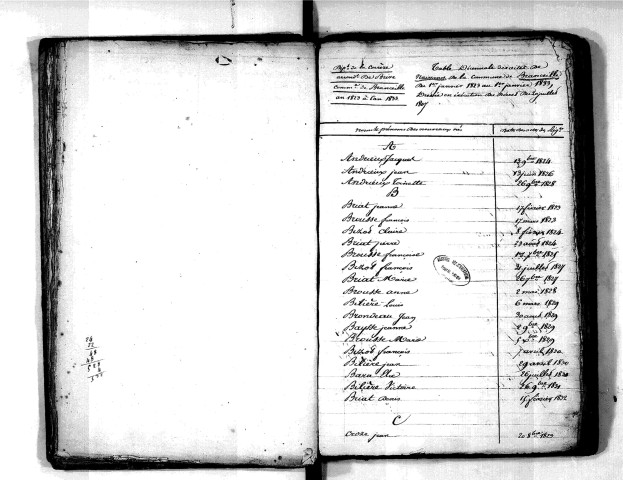 Dépt de la Corrèze
arrondt de Brive
Commne de Branceille
an 1823 à l'an 1833
Table Décennale des actes de
Naissance de la commune de Branceille
du 1er janvier 1823 au 1er janvier 1833,
Dressée en exécution du décret du 20 juillet
1807
nom & prénoms des nouveaux nés
A
Andrieux Jacques 13 9bre 1824
Andrieux jean 13 juin 1826
Andrieux toinette 26 9bre 1828
B
Briat jeanne 17 février 1823
Brousse françois 17 mars 1823
Bezos Claire 8 février 1824
Briat pierre 23 août 1824
Brousse françoise 17 7bre 1825
Bezos françois 21 juillet 1827
Briat Marie 26 7bre 1827
Brousse anne 2 mai 1828
Bitière Louis 6 mars 1829
Brondeau Jean 30 août 1829
Baysse jeanne 2 9bre 1829
Brousse Marie 5 xbre 1829
Bezos françois 7 avril 1830
Bitière jean 29 avril 1830
16 juillet 1830
Bitière Victoire 26 9bre 1831
Briat denis 15 février 1832
C
Croze jean 20 8bre 1823